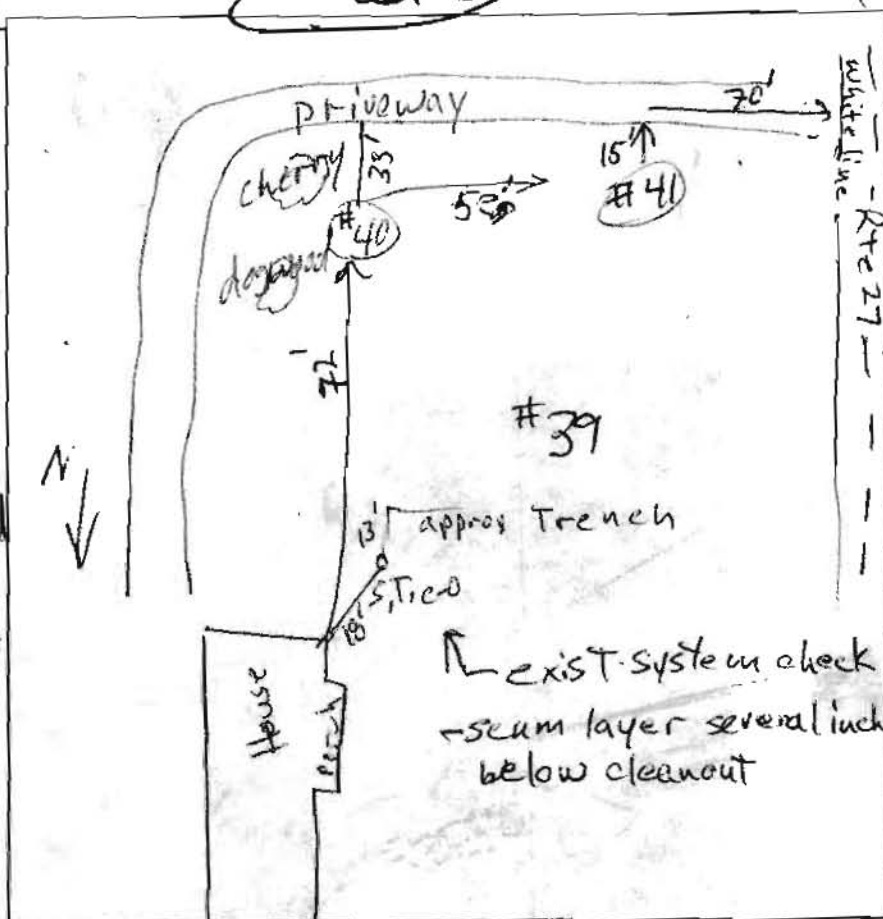 Driveway
70'
white line
Rte 27
cherry
33'
15'
#41
#40
dogwood
72'
#39
N
13'
approx Trench
18'
House
Porch
exisT. system check
-scum layer several inch
below cleanout